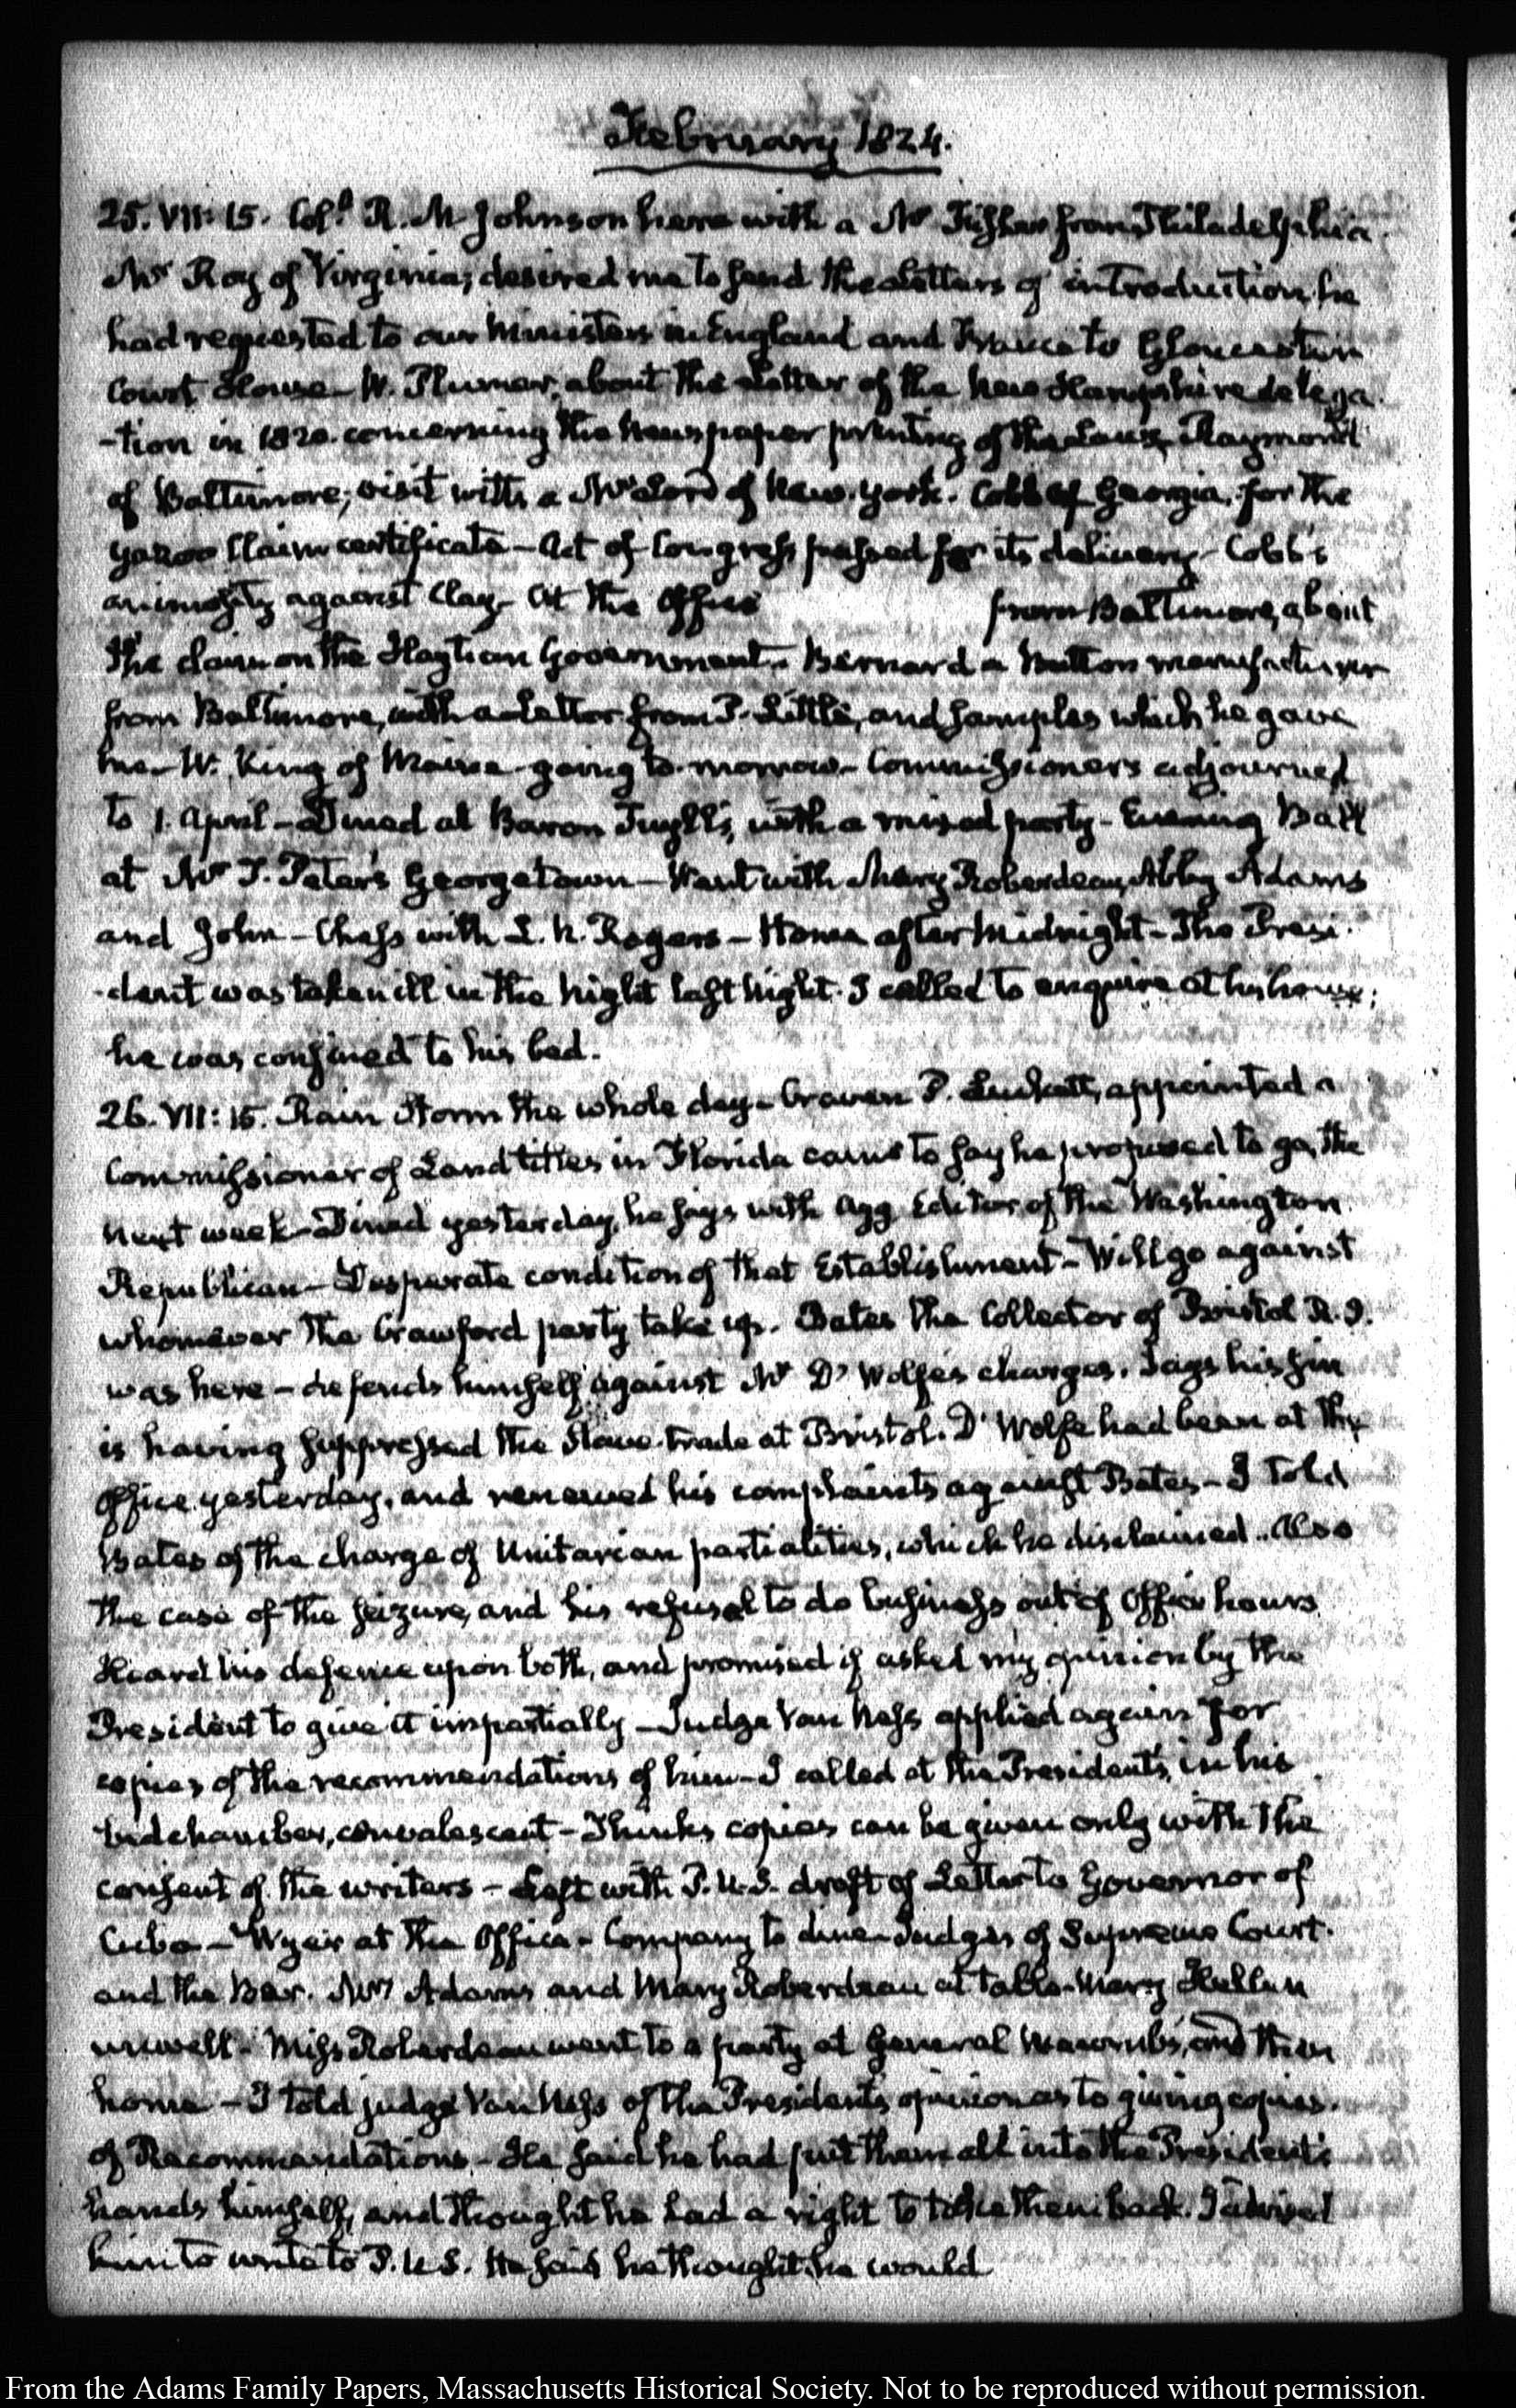 February 1824.
25. VII: 15. Coll. R. M Johnson here with a Mr Fisher from Philadelphia.
Mr Roy of Virginia; desired me to send the Letters of introduction he
had requested to our Ministers in England and France to Gloucester
Court House — W. Plumer, about the Letter of the New Hampshire delega
-tion in 1820. concerning the Newspaper printing of the Laws — Raymond
of Baltimore; visit with a Mr Lord of New-York. Cobb of Georgia, for the
Yazoo Claim certificate — Act of Congress passed for its delivery — Cobb's
animosity against Clay — At the Office from Baltimore, about
the claim on the Haytian Government — Bernard a Button manufacturer
from Baltimore, with a Letter from P. Little, and samples which he gave
me — W. King of Maine going to-morrow — Commissioners adjourned
to 1. April — Dined at Baron Tuyll's, with a mixed party — Evening Ball
at Mr T. Peter's Georgetown — Went with Mary Roberdeau, Abby Adams
and John — Chess with L. N. Rogers — Home after Midnight — The Presi-
-dent was taken ill in the Night last night. I called to enquire at his house;
he was confined to his bed.
26. VII: 15. Rain Storm the whole day — Craven P. Luckett, appointed a
Commissioner of Land titles in Florida came to say he proposed to go, the
next week — Dined yesterday, he says with Agg Editor of the Washington
Republican — Desperate condition of that Establishment — Will go against
whomever the Crawford party take up. Bates the Collector of Bristol R. I.
was here — defends himself against Mr D'Wolfe's charges. Says his sin
is having suppressed the Slave-trade at Bristol. D'Wolfe had been at the
Office yesterday, and renewed his complaints against Bates — I told
Bates of the charge of Unitarian partialities, which he disclaimed. Also
the case of the seizure, and his refusal to do business out of Office hours
Heard his defence upon both, and promised if asked my opinion by the
President to give it impartially — Judge Van Ness applied again for
copies of the recommendations of him — I called at the President's, in his
bedchamber, convalescent — Thinks copies can be given only with the
consent of the writers — Left with P. U. S. draft of Letter to Governor of
Cuba — Wyer at the Office — Company to dine — Judges of Supreme Court
and the Bar. Mrs Adams and Mary Roberdeau at table — Mary Hellen
unwell — Miss Roberdeau went to a party at General Macomb's, and then
home — I told judge Van Ness of the President's opinion as to giving copies
of Recommendations — He said he had put them all into the President's
hands himself, and thought he had a right to take them back. I advised
him to write to P. U. S. He said he thought he would
From the Adams Family Papers, Massachusetts Historical Society. Not to be reproduced without permission.